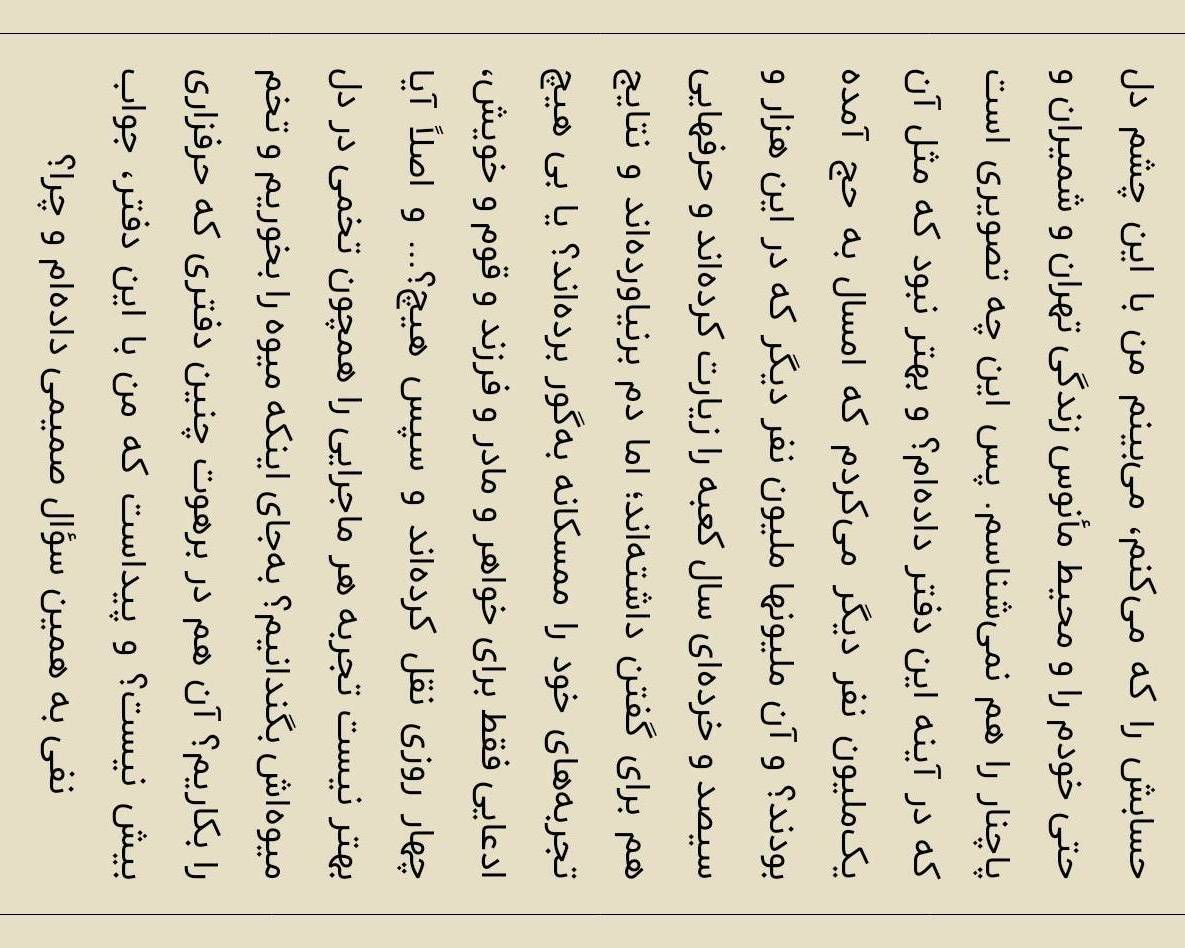 حسابش را که می‌کنم، می‌بینم من با این چشم دل
حتی خودم را و محیط مأنوس زندگی تهران و شمیران و
پاچنار را هم نمی‌شناسم. پس این چه تصویری است
که در آینه این دفتر داده‌ام؟ و بهتر نبود که مثل آن
یک‌ملیون نفر دیگر می‌کردم که امسال به حج آمده
بودند؟ و آن ملیونها ملیون نفر دیگر که در این هزار و
سیصد و خرده‌ای سال کعبه را زیارت کرده‌اند و حرفهایی
هم برای گفتن داشته‌اند؛ اما دم برنیاورده‌اند و نتایج
تجربه‌های خود را ممسکانه به‌گور برده‌اند؟ یا بی هیچ
ادعایی فقط برای خواهر و مادر و فرزند و قوم و خویش،
چهار روزی نقل کرده‌اند و سپس هیچ؟... و اصلاً آیا
بهتر نیست تجربه هر ماجرایی را همچون تخمی در دل
میوه‌اش بگندانیم؟ به‌جای اینکه میوه را بخوریم و تخم
را بکاریم؟ آن هم در برهوت چنین دفتری که حرفزاری
بیش نیست؟ و پیداست که من با این دفتر، جواب
نفی به همین سؤال صمیمی داده‌ام و چرا؟